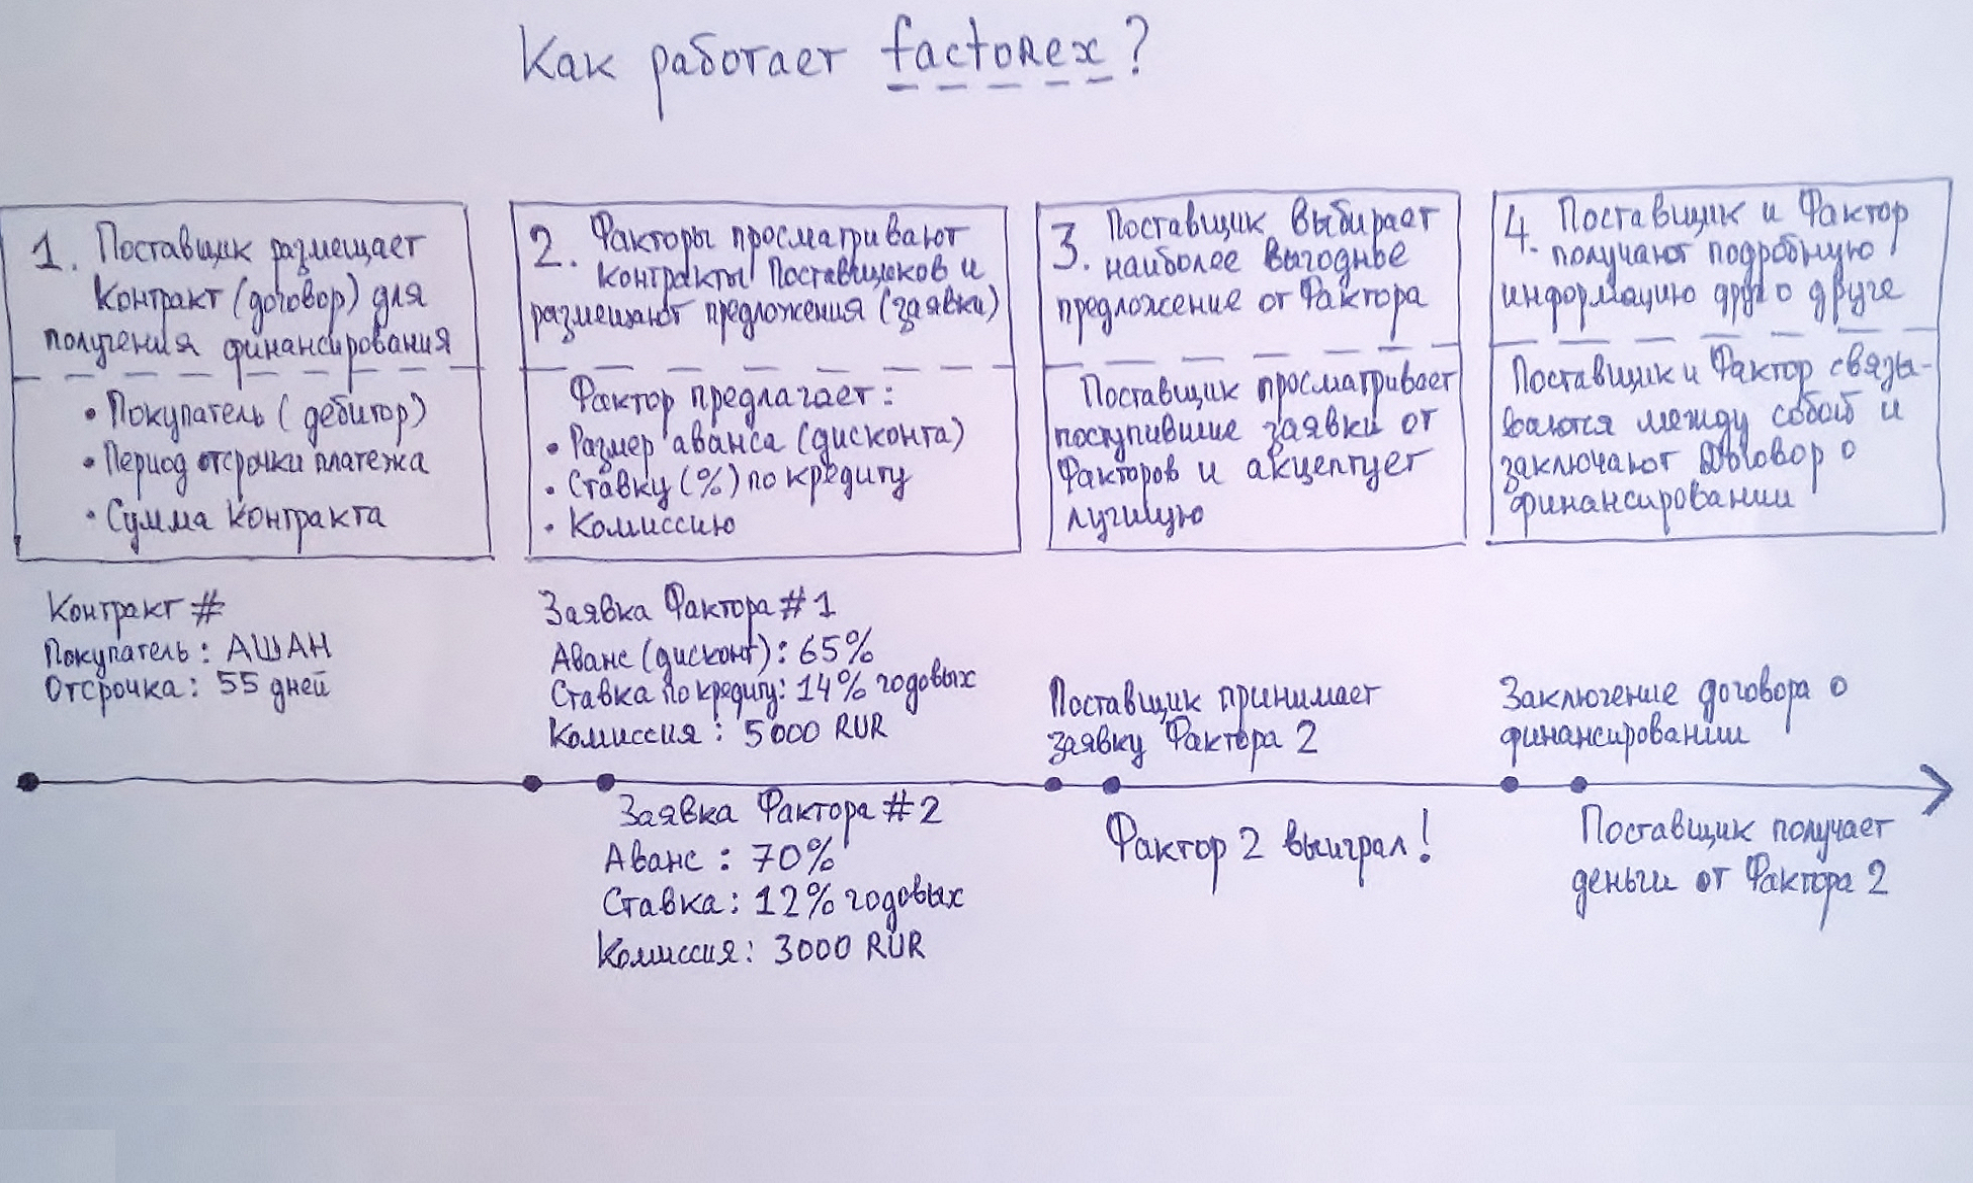 Как работает factorex?
1. Поставщик размещает
Контракт (договор) для
получения финансирования
• Покупатель (дебитор)
• Период отсрочки платежа
• Сумма контракта
2. Факторы просматривают
контракты Поставщиков и
размещают предложения (заявки)
Фактор предлагает:
• Размер аванса (дисконта)
• Ставку (%) по кредиту
• Комиссию
3. Поставщик выбирает
наиболее выгодные
предложение от Фактора
Поставщик просматривает
поступившие заявки от
Факторов и акцептует
лучшую
4. Поставщик и Фактор
получают подробную
информацию друг о друге
Поставщик и Фактор связы-
ваются между собой и
заключают Договор о
финансировании
Контракт #
Покупатель: АШАН
Отсрочка: 55 дней
Заявка Фактора #1
Аванс (дисконт): 65%
Ставка по кредиту: 14% годовых
Комиссия: 5000 RUR
Поставщик принимает
заявку Фактора 2
Заключение договора о
финансировании
Заявка Фактора #2
Аванс: 70%
Ставка: 12% годовых
Комиссия: 3000 RUR
Фактор 2 выиграл!
Поставщик получает
деньги от Фактора 2